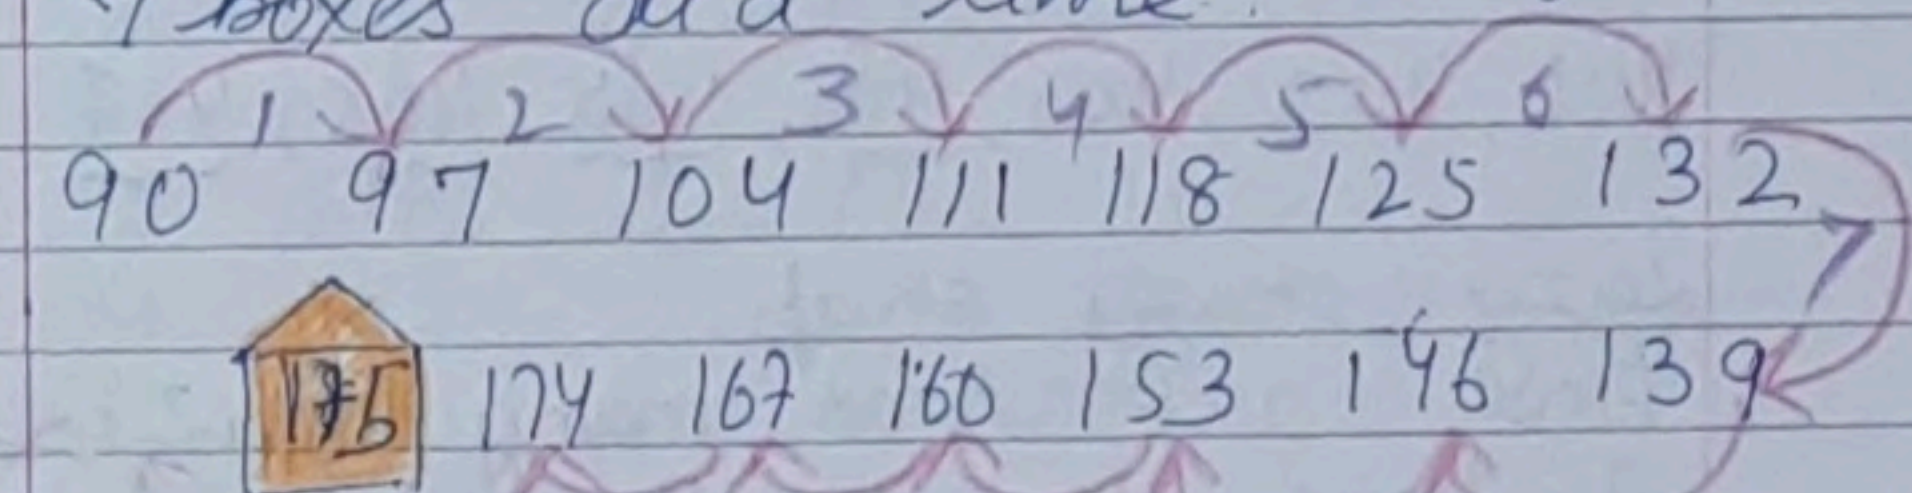 7 boxes at a time.
1 2 3 4 5 6
90 97 104 111 118 125 132
7
174 167 160 153 146 139